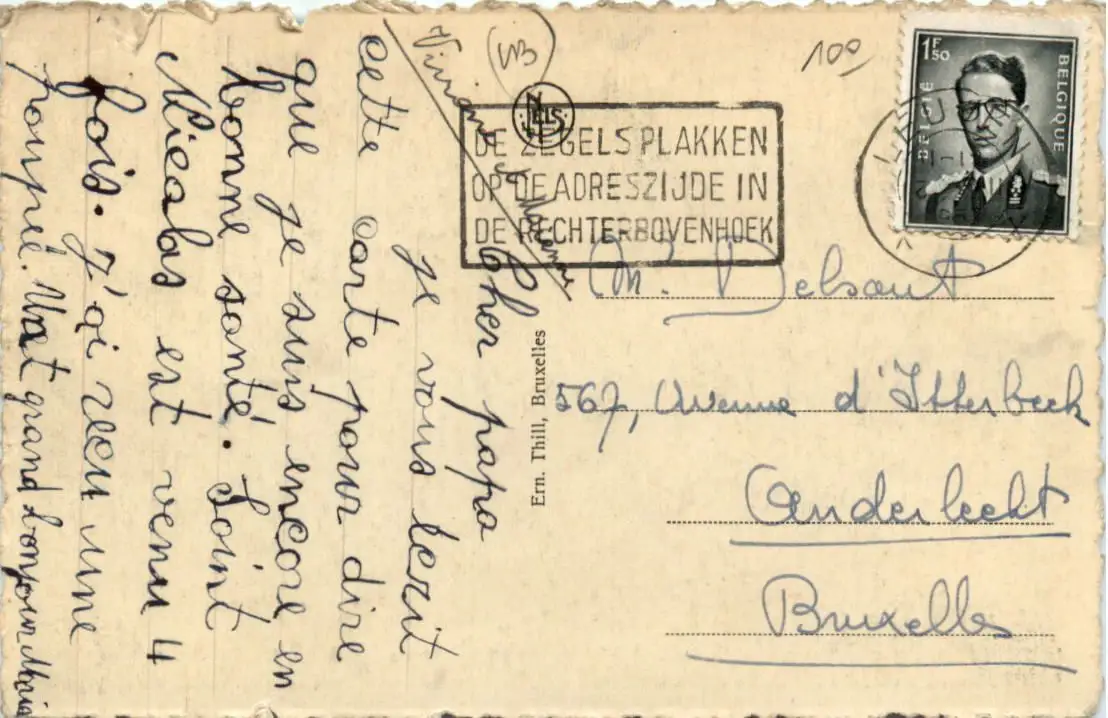 Cher papa
je vous ecrit
cette carte pour dire
que je suis encore en
bonne santé. Saint
Nicolas est venu 4
fois. J'ai reçu une
poupée. Un grand bonjour
NELS
DE ZEGELS PLAKKEN
OP DE ADRESZIJDE IN
DE RECHTERBOVENHOEK
10º
1F50
BELGIE BELGIQUE
M. Delsaut
567, Avenue d'Itterbeek
Anderlecht
Bruxelles
Ern. Thill, Bruxelles